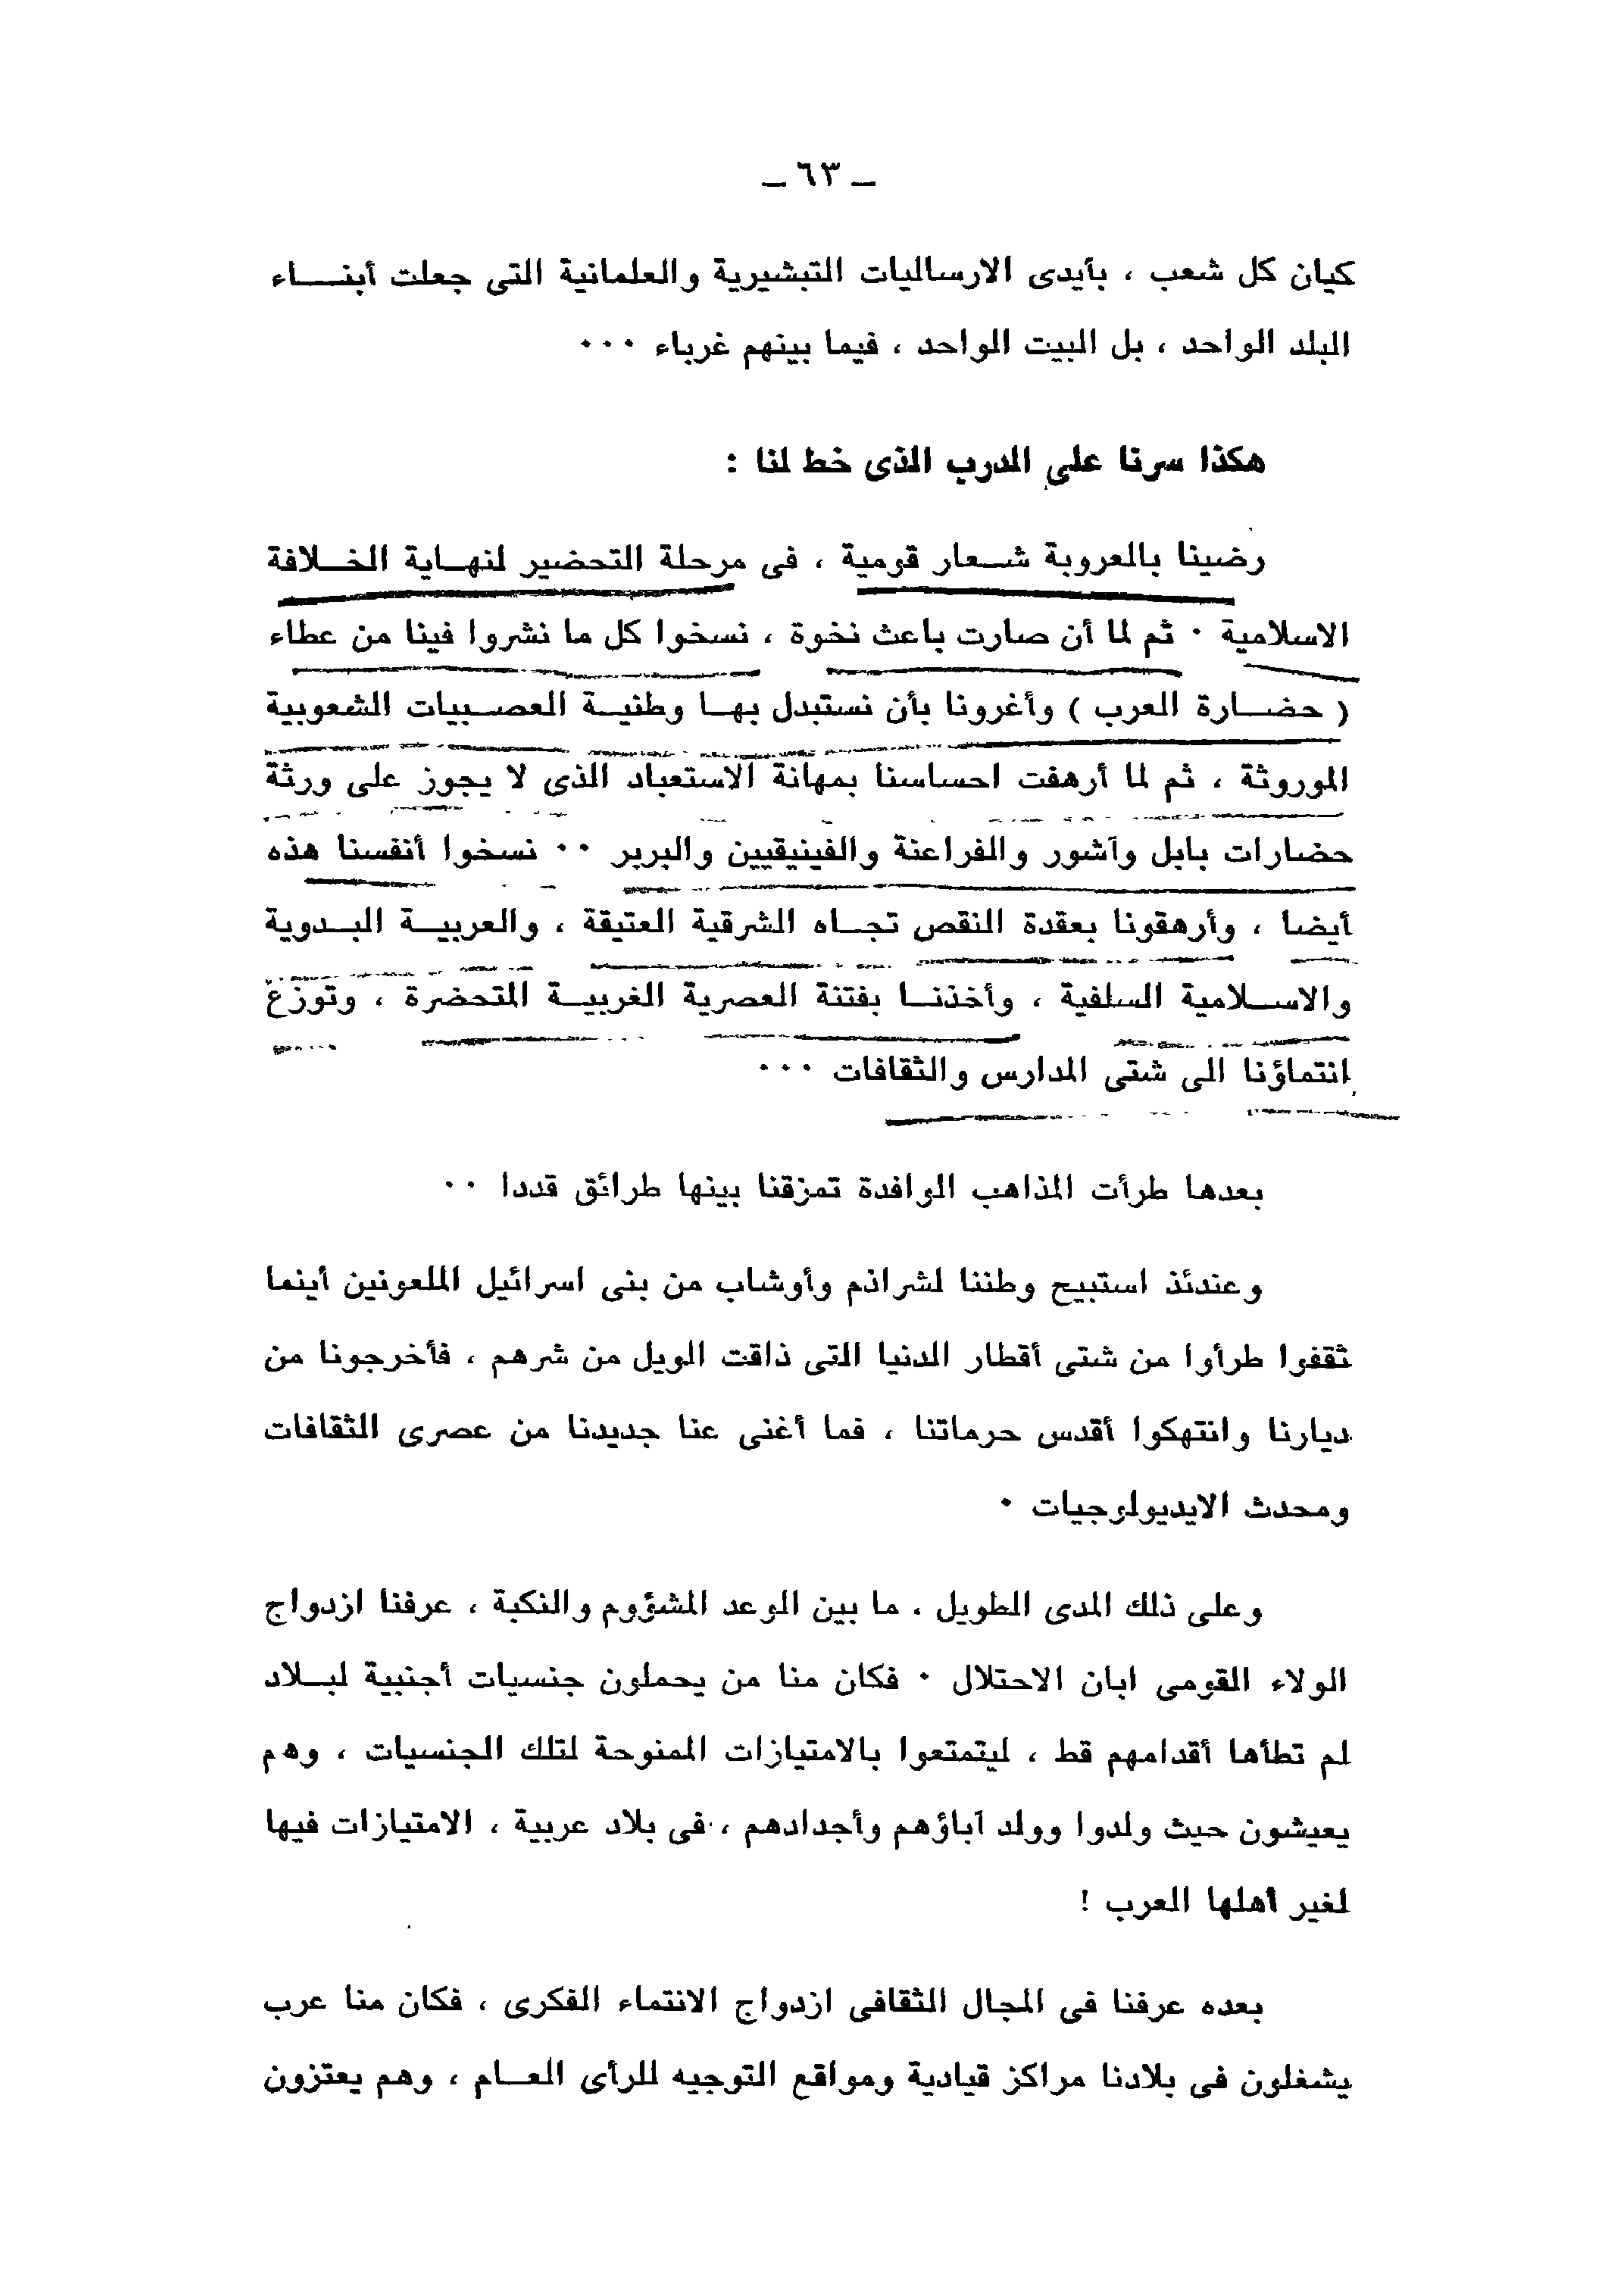 ـ ٦٣ ـ
كيان كل شعب ، بأيدى الارساليات التبشيرية والعلمانية التى جعلت أبنـــاء
البلد الواحد ، بل البيت الواحد ، فيما بينهم غرباء ٠٠٠
هكذا سرنا على الدرب الذى خط لنا :
رضينا بالعروبة شــعار قومية ، فى مرحلة التحضير لنهــاية الخــلافة
الاسلامية ٠ ثم لما أن صارت باعث نخوة ، نسخوا كل ما نشروا فينا من عطاء
( حضــارة العرب ) وأغرونا بأن نستبدل بهــا وطنيــة العصــبيات الشعوبية
الموروثة ، ثم لما أرهفت احساسنا بمهانة الاستعباد الذى لا يجوز على ورثة
حضارات بابل وآشور والفراعنة والفينيقيين والبربر ٠٠ نسخوا أنفسنا هذه
أيضا ، وأرهقونا بعقدة النقص تجــاه الشرقية العتيقة ، والعربيــة البــدوية
والاســلامية السلفية ، وأخذنــا بفتنة العصرية الغربيــة المتحضرة ، وتوزع
انتماؤنا الى شتى المدارس والثقافات ٠٠٠
بعدها طرأت المذاهب الوافدة تمزقنا بينها طرائق قددا ٠٠
وعندئذ استبيح وطننا لشراذم وأوشاب من بنى اسرائيل الملعونين أينما
ثقفوا طرأوا من شتى أقطار الدنيا التى ذاقت الويل من شرهم ، فأخرجونا من
ديارنا وانتهكوا أقدس حرماتنا ، فما أغنى عنا جديدنا من عصرى الثقافات
ومحدث الايديولوجيات ٠
وعلى ذلك المدى الطويل ، ما بين الوعد المشؤوم والنكبة ، عرفنا ازدواج
الولاء القومى ابان الاحتلال ٠ فكان منا من يحملون جنسيات أجنبية لبــلاد
لم تطأها أقدامهم قط ، ليتمتعوا بالامتيازات الممنوحة لتلك الجنسيات ، وهم
يعيشون حيث ولدوا وولد آباؤهم وأجدادهم ، فى بلاد عربية ، الامتيازات فيها
لغير أهلها العرب !
بعده عرفنا فى المجال الثقافى ازدواج الانتماء الفكرى ، فكان منا عرب
يشغلون فى بلادنا مراكز قيادية ومواقع التوجيه للرأى العــام ، وهم يعتزون